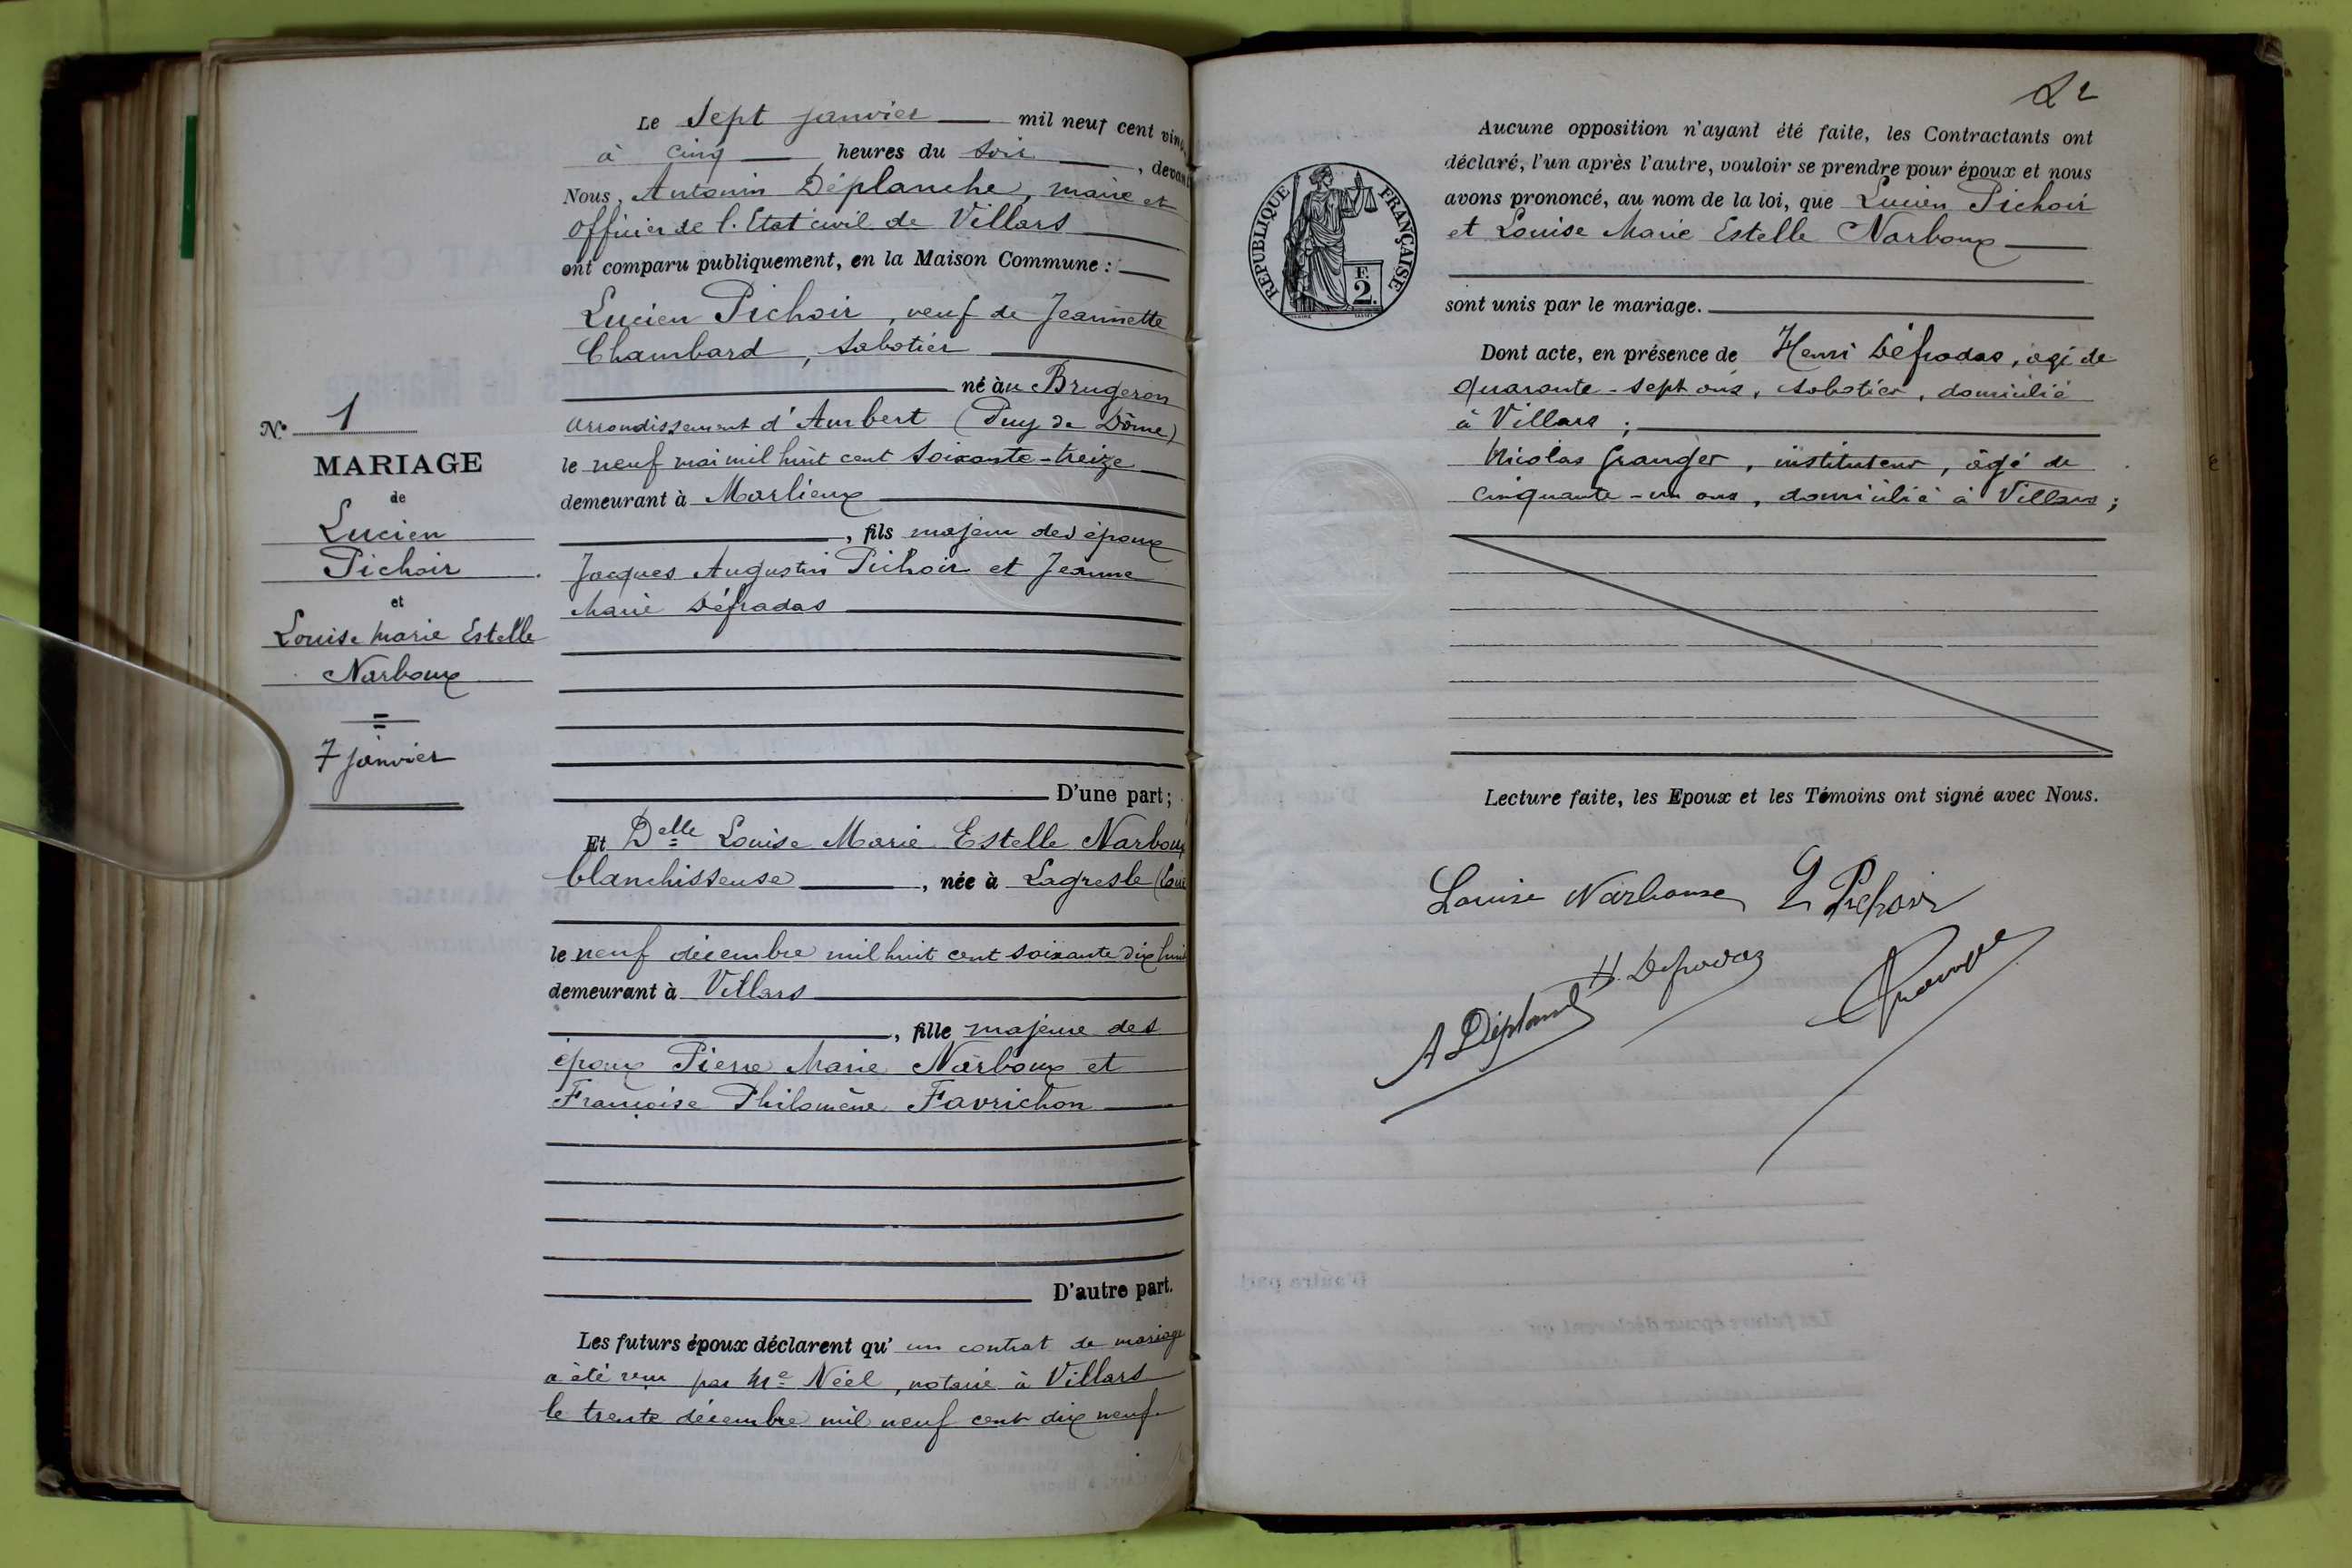 Le Sept janvier mil neuf cent
à cinq heures du soir, devant
Nous, Antonin Déplanche, maire et
officier de l'Etat civil de Villars
ont comparu publiquement, en la Maison Commune :
Lucien Pichoir, veuf de Jeannette
Chambard, sabotier
né àu Brugeron
arrondissement d'Ambert (Puy de Dôme)
le neuf mai mil huit cent soixante-treize
demeurant à Marlieux
, fils majeur des époux
Jacques Augustin Pichoir et Jeanne
Marie Défradas
D'une part ;
N° 1
MARIAGE
de
Lucien
Pichoir
et
Louise Marie Estelle
Narboux
7 janvier
Et Delle Louise Marie Estelle Narboux
blanchisseuse, née à Lagresle (Loire
le neuf décembre mil huit cent soixante dix huit
demeurant à Villars
, fille majeure des
époux Pierre Marie Narboux et
Françoise Philomène Favrichon
D'autre part.
Les futurs époux déclarent qu' un contrat de mariage
a été reçu par Me Néel, notaire à Villars
le trente décembre mil neuf cent dix neuf.
Aucune opposition n'ayant été faite, les Contractants ont
déclaré, l'un après l'autre, vouloir se prendre pour époux et nous
avons prononcé, au nom de la loi, que Lucien Pichoir
et Louise Marie Estelle Narboux
sont unis par le mariage.
RÉPUBLIQUE FRANÇAISE
F.
2.
Dont acte, en présence de Henri Défradas, agé de
quarante-sept ans, sabotier, domicilié
à Villars ;
Nicolas Granger, instituteur, âgé de
cinquante-un ans, domicilié à Villars ;
Lecture faite, les Epoux et les Témoins ont signé avec Nous.
Louise Narboux L Pichoir
A Déplanche H. Defradas Granger